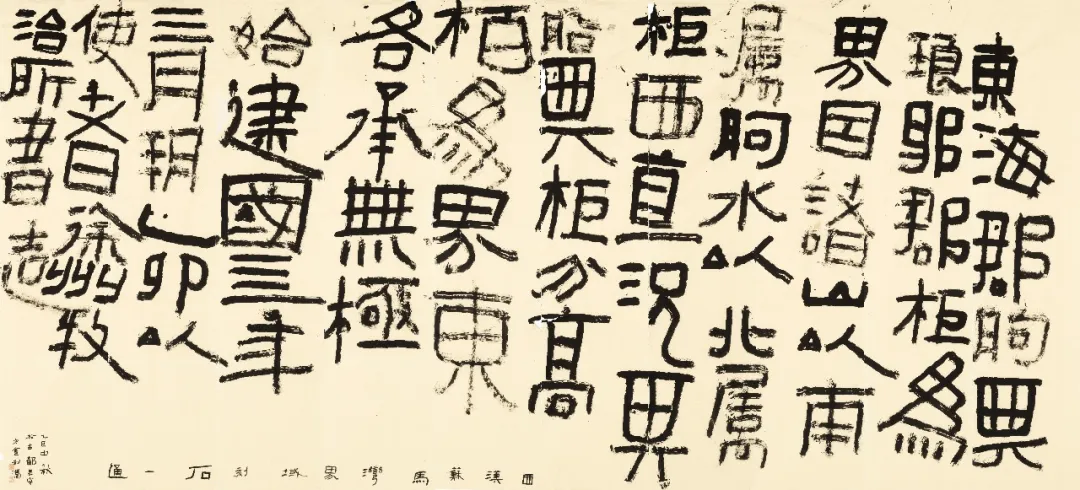 東海郡朐與
琅邪郡柜為
界因諸山以南
屬朐水以北屬
柜西直況其
朐與柜分高
栢為界東
各承無極
始建國四年
四月朔乙卯以
使者徐州牧
治所書造
西漢蘇馬灣界域刻石一通